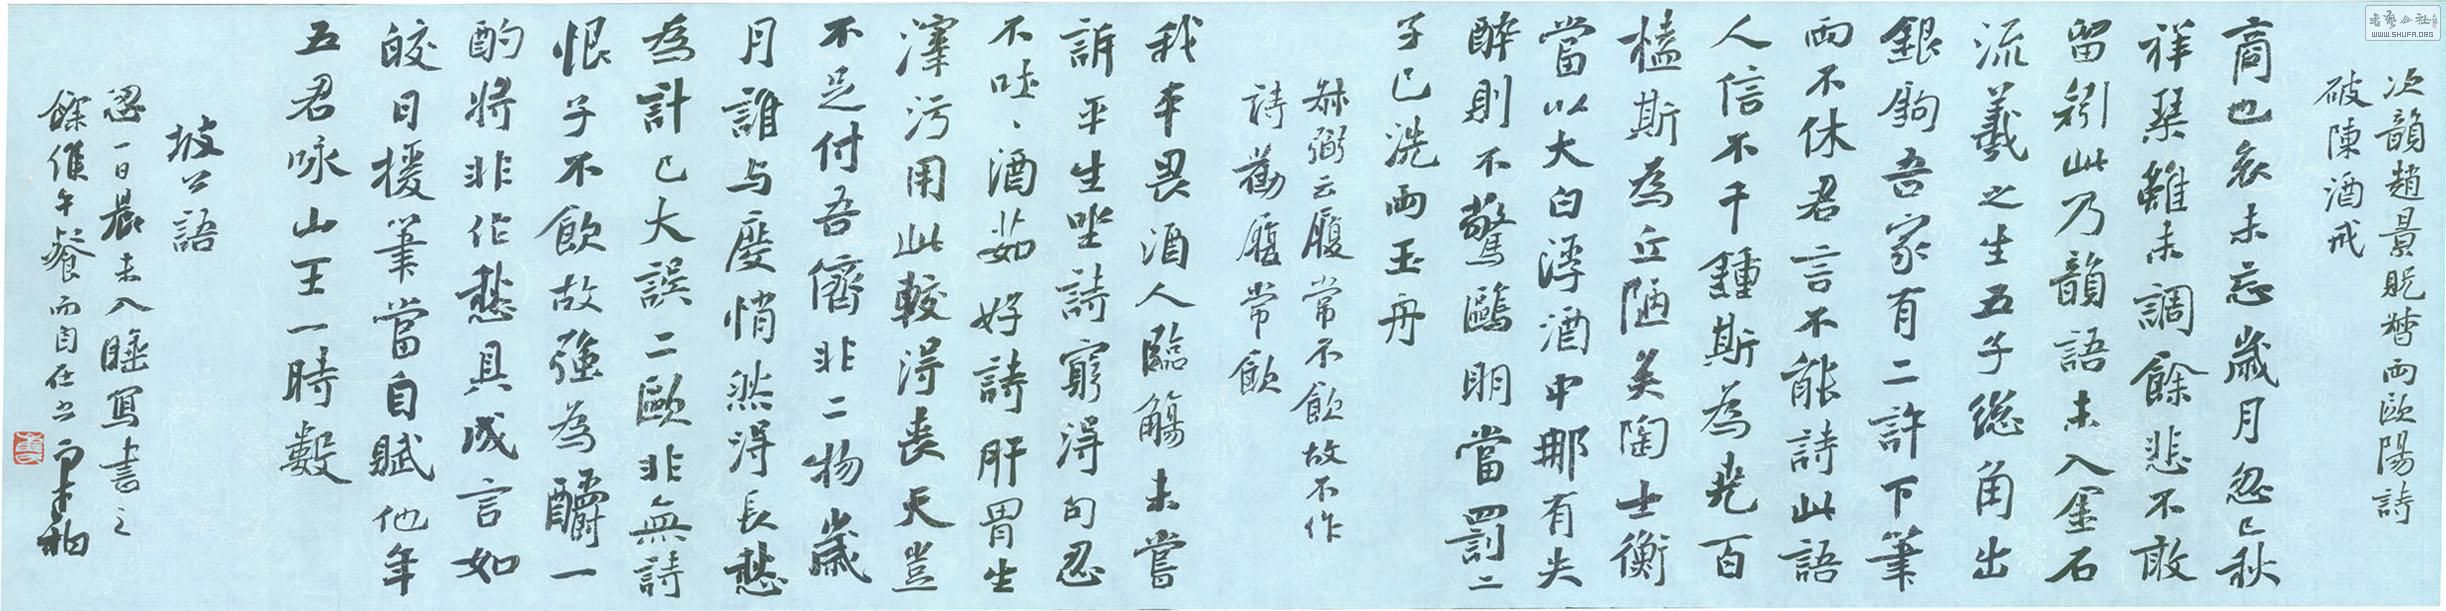 次韻趙景貺督兩歐陽詩
破陳酒戒
商也哀未忘歲月忽已秋
祥琴雖未調餘悲不敢
留矧此乃韻語未入金石
流羲之生五子總角出
銀鉤吾家有二許下筆
兩不休君言不能詩此語
人信不千鍾斯為堯百
榼斯為丘陋矣陶士衡
當以大白浮酒中那有失
醉則不驚鷗明當罰二
子已洗兩玉舟
叔弼云履常不飲故不作
詩勸履常飲
我本畏酒人臨觴未嘗
訴平生坐詩窮得句忍
不吐、酒茹好詩肝胃生
滓污用此較得喪天豈
不足付吾儕非二物歲
月誰与度悄然得長愁
為計已大誤二歐非無詩
恨子不飲故強為釂一
酌將非作愁具成言如
皎日援筆當自賦他年
五君咏山王一時數
坡公語
一日晨未入睡寫書之
餘維午餐而自仕
書藝公社
WWW.SHUFA.ORG